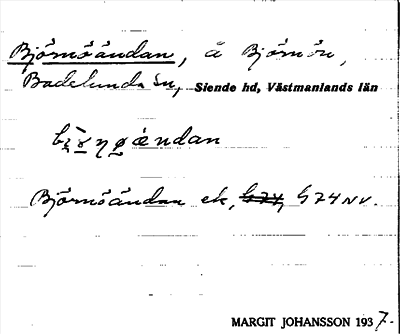 Björnöändan, å Björnön,
Badelunda sn, Siende hd, Västmanlands län
Björnöändan ek, G74 NV.
MARGIT JOHANSSON 1937.